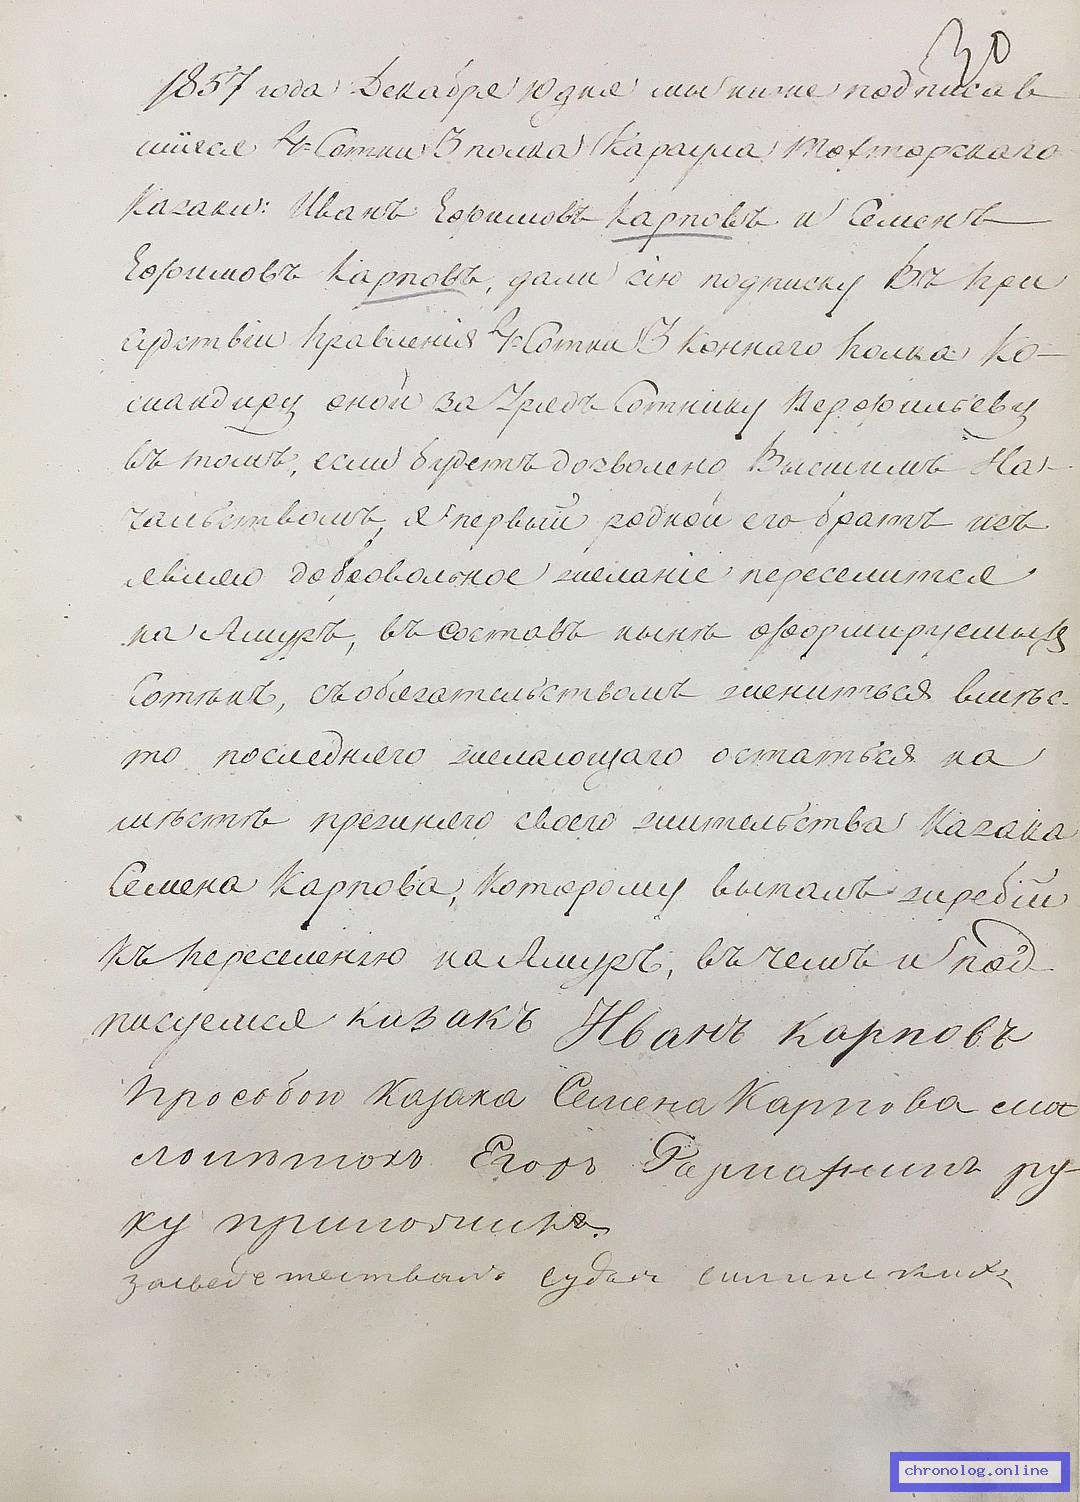 30
1857 года Декабря 10 дня мы ниже подписав
шiеся 4 Сотни 3 полка Караула Мохторскаго
Казаки: Иванъ Ефимовъ Карповъ и Семенъ
Ефимовъ Карповъ, дали сiю подписку Въ При
судствiи Правленiя 4 Сотни 3 Коннаго Полка Ко-
мандиру оной за Уряд Сотнику Перфильеву
въ томъ, если будетъ дозволено Высшимъ На-
чальствомъ, я первый родной его братъ изъ
являю добровольное желанiе переселится
на Амуръ, въ составъ нынѣ формируемыхъ
Сотенъ, съ обязательствомъ жениться вмѣс-
то последняго желающаго остаться на
мѣстѣ прежняго своего жительства Казака
Семена Карпова, Которому выпалъ жребiй
къ Переселенiю на Амуръ, въ чемъ и под
писуемся казакъ Иванъ карповъ
Прозбою Казака Семена Карпова
Егоръ ру-
ку приложилъ